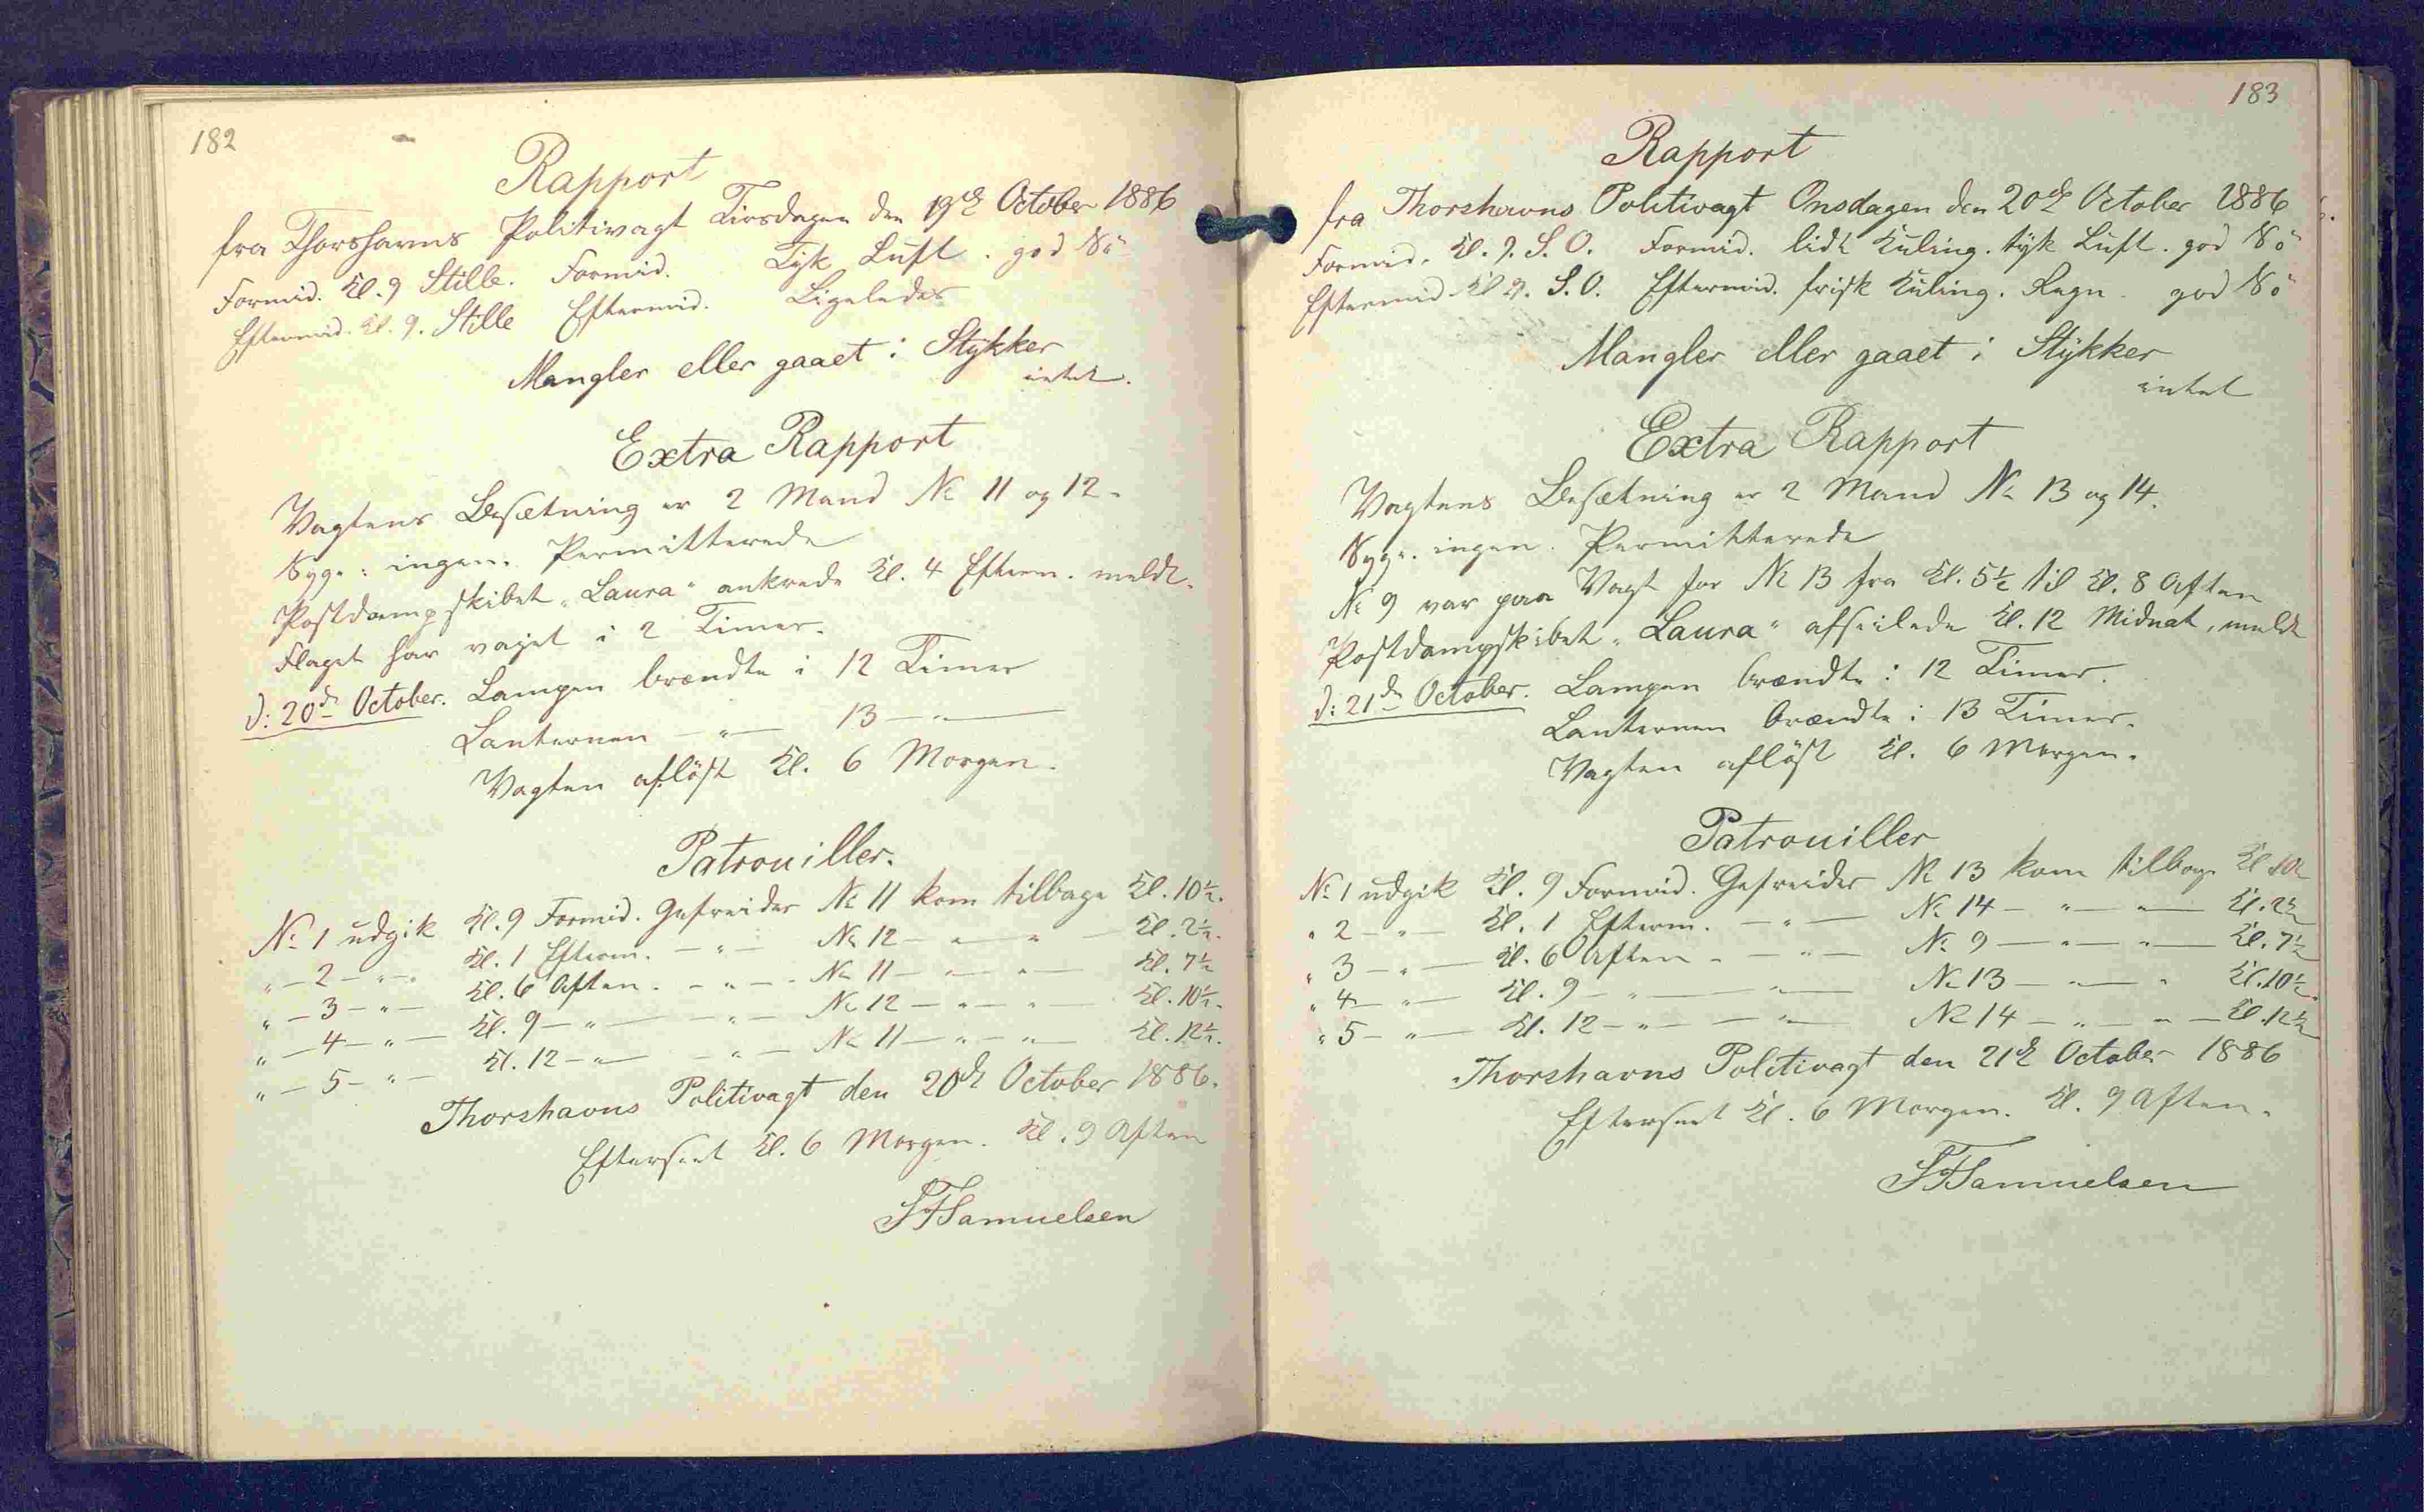 182
Rapport
fra Thorshavns Politivagt Tirsdagen den 19de October 1886
Formid. Kl. 9 Stille. Formid. Tyk Luft. god Sö
Eftermid. Kl. 9. Stille Eftermid. Ligeledes
Mangler eller gaaet i Stykker
intet.
Extra Rapport
Vagtens Besætning er 2 Mand No 11 og 12.
Syge: ingen. Permitterede
Postdampskibet "Laura" ankrede Kl. 4 Efterm. meldt.
Flaget har vajet i 2 Timer.
d: 20de October. Lampen brændte i 12 Timer
Lanternen — " — 13 — " —
Vagten aflöst Kl. 6 Morgen.
Patrouiller.
No 1 udgik Kl. 9 Formid. Gefreider No 11 kom tilbage Kl. 10½.
" — 2 — " — Kl. 1 Efterm. — " — No 12 — " — " — Kl. 2½.
" — 3 — " — Kl. 6 Aften. — " — No 11 — " — " — Kl. 7½
" — 4 — " — Kl. 9 — " — — " — No 12 — " — " — Kl. 10½.
" — 5 — " — Kl. 12 — " — — " — No 11 — " — " — Kl. 12½.
Thorshavns Politivagt den 20de October 1886.
Efterseet Kl. 6 Morgen. Kl. 9 Aften
SFSamuelsen
183
Rapport
fra Thorshavns Politivagt Onsdagen den 20de October 1886
Formid. Kl. 9. S.O. Formid. lidt Kuling. tyk Luft. god Sö
Eftermid. Kl. 9. S.O. Eftermid. frisk Kuling. Regn. god Sö
Mangler eller gaaet i Stykker
intet
Extra Rapport
Vagtens Besætning er 2 Mand No 13 og 14.
Syge. ingen. Permitterede
No 9 var paa Vagt for No 13 fra Kl. 5½ til Kl. 8 Aften
Postdampskibet "Laura" afseilede Kl. 12 Midnat, meldt
d: 21de October. Lampen brændte i 12 Timer.
Lanternen brændte i 13 Timer.
Vagten aflöst Kl. 6 Morgen.
Patrouiller
No 1 udgik Kl. 9 Formid. Gefreider No 13 kom tilbage Kl. 10½
" 2 — " — Kl. 1 Efterm. — " — No 14 — " — " — Kl. 2½
" 3 — " — Kl. 6 Aften — " — No 9 — " — " — Kl. 7½
" 4 — " — Kl. 9 — " — " — No 13 — " — " Kl. 10½.
" 5 — " — Kl. 12 — " — " — No 14 — " — " — Kl. 12½
Thorshavns Politivagt den 21de October 1886
Efterseet Kl. 6 Morgen. Kl. 9 Aften.
SFSamuelsen